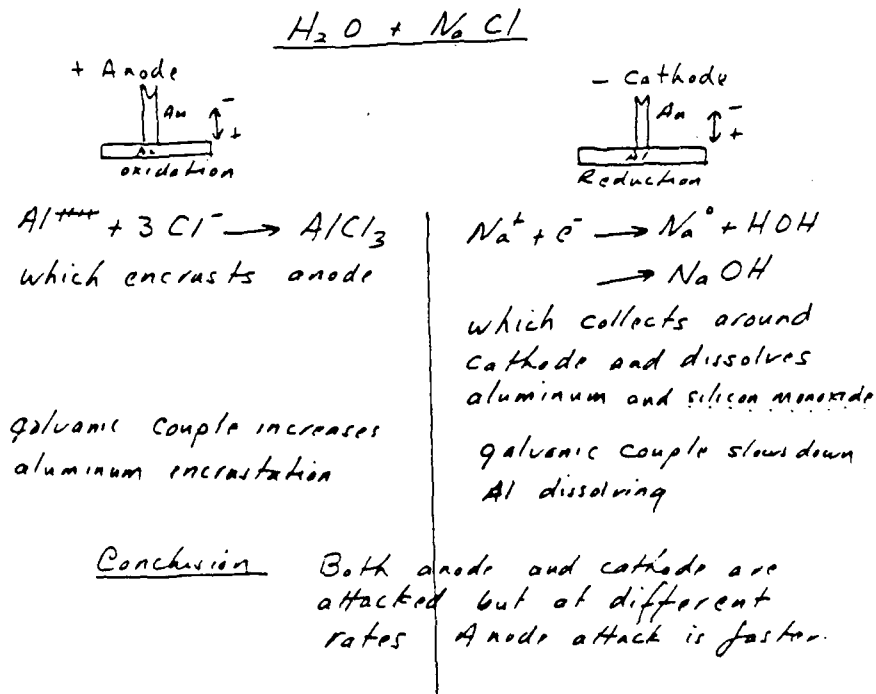 H₂O + NaCl
+ Anode
Au
-
+
oxidation
Al+++ + 3 Cl⁻ → AlCl₃
which encrusts anode
galvanic couple increases
aluminum encrustation
- Cathode
Au
-
+
Al
Reduction
Na⁺ + e⁻ → Na° + HOH
→ NaOH
which collects around
cathode and dissolves
aluminum and silicon monoxide
galvanic couple slows down
Al dissolving
Conclusion Both anode and cathode are
attacked but at different
rates Anode attack is faster.